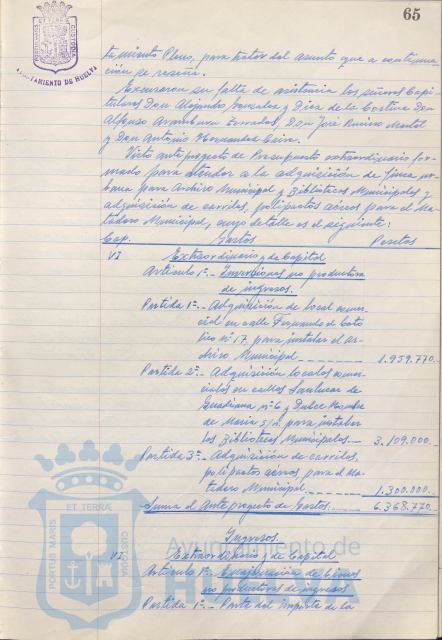 65
PORTUS MARIS ET TERRAE CUSTODIA
AYUNTAMIENTO DE HUELVA
tamiento Pleno, para tratar del asunto que a continua-
ción se reseña.
Excusaron su falta de asistencia los señores Capi-
tulares Don Alejandro González y Díez de la Cortina Don
Alfonso Aramburu Terrades, Don José
y Don Antonio Hernández
Visto anteproyecto de Presupuesto extraordinario for-
mado para atender a la adquisición de finca ur-
bana para Archivo Municipal y Bibliotecas Municipales y
adquisición de carriles, polipastos aéreos para el Ma-
tadero Municipal, cuyo detalle es el siguiente:
Cap. Gastos Pesetas
VI Extraordinario y de Capital
Artículo 1º.- Inversiones no productora
de ingresos.
Partida 1º.- Adquisición de local comer-
cial en calle Fernando el Cató-
lico nº 17, para instalar el Ar-
chivo Municipal 1.959.770.-
Partida 2º.- Adquisición locales comer-
ciales en calles Sanlucar de
Guadiana nº 6 y Dulce Nombre
de María 5/2, para instalar
las Bibliotecas Municipales.- 3.109.000.-
Partida 3º.- Adquisición de carriles,
polipastos aéreos, para el Ma-
tadero Municipal 1.300.000.-
Suma el Anteproyecto de Gastos 6.368.770.-
Ingresos.
VI. Extraordinario y de Capital
Artículo 1º.- Enajenación de bienes
no productores de ingresos
Partida 1º.- Parte del importe de la
PORTUS MARIS ET TERRAE CUSTODIA
Ayuntamiento de
HUELVA